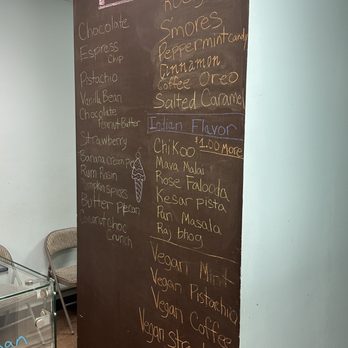 Chocolate
Espress
Chip
Pistachio
Vanilla Bean
Chocolate
Peanut Butter
Strawberry
Banana cream pie
Rum Raisin
Pumpkin spices
Butter Pecan
Coconut Choc
Crunch
S'mores
Peppermint candy
Cinnamon
Coffee Oreo
Salted Caramel
Indian Flavor
$1.00 more
Chikoo
Mava Malai
Rose Falooda
Kesar pista
Pan Masala
Raj bhog
Vegan Mint
Vegan Pistachio
Vegan Coffee
Vegan